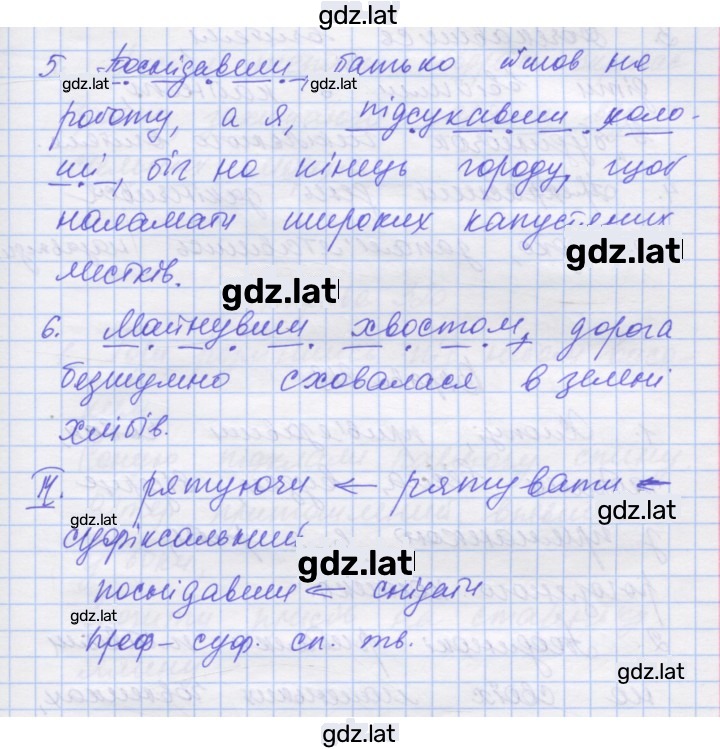 gdz.lat
5 Поснідавши, батько йшов на
gdz.lat gdz.lat
роботу, а я, підсукавши коло-
ші, біг на кінець городу, щоб
наламати широких капустяних
gdz.lat
листків.
gdz.lat
6. Майнувши хвостом, дорога
безшумно сховалася в зелені
хлібів.
IV. рятуючи ← рятувати ←
gdz.lat gdz.lat
суфіксальний
gdz.lat
поснідавши ← снідати
gdz.lat
преф-суф. сп. тв.
gdz.lat
gdz.lat